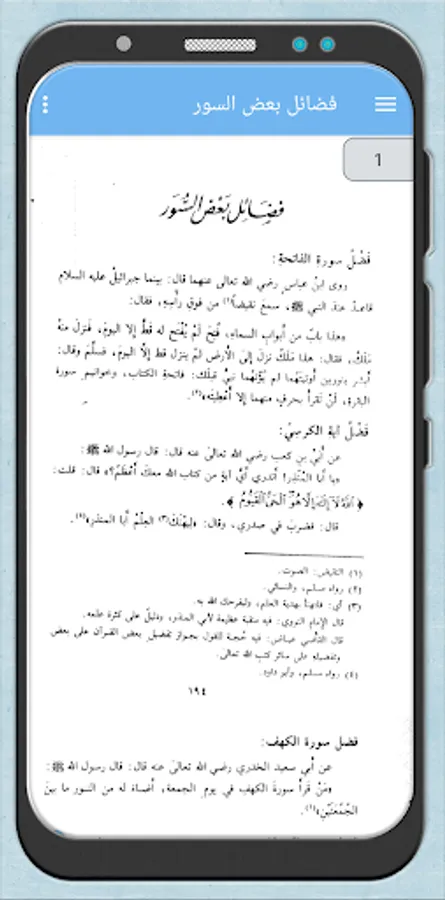 فضائل بعض السور
1
فضائل بعض السور
فَضْلُ سورةِ الفاتحةِ:
روى ابنُ عباسٍ رضي الله تعالى عنهما قال: بينما جبرائيلُ عليه السلام
قاعدٌ عندَ النبي ﷺ، سمعَ نقيضاً(١) من فوقِ رأسِهِ، فقال:
«هذا بابٌ من أبوابِ السماءِ، فُتِحَ لَمْ يُفْتَح له قطُّ إلا اليومَ، فنزلَ منهُ
مَلَكٌ، فقال: هذا مَلَكٌ نزلَ إلى الأرضِ لمْ ينزل قط إلا اليومَ، فسلَّمَ وقال:
أبشر بنورين أوتيتَهُما لم يُؤْتَهُما نبيٌّ قبلَكَ: فاتحةِ الكتابِ، وخواتيمِ سورة
البقرةِ، لَنْ تقرأَ بحرفٍ منهما إلا أُعْطِيتَه»(٢).
فَضْلُ آيةِ الكرسيّ:
عن أُبَيّ بنِ كعب رضي الله تعالىٰ عنه قال: قال رسول الله ﷺ:
«يا أبا المُنْذِرِ! أتدري أيُّ آيةٍ من كتاب الله معكَ أعْظَمُ؟» قال: قلت:
﴿ اللَّهُ لَا إِلَٰهَ إِلَّا هُوَ الْحَيُّ الْقَيُّومُ ﴾.
قال: فضربَ في صدري، وقال: «لِيَهْنِكَ(٣) العِلْمُ أبا المنذر»(٤).
(١) النقيض: الصوت.
(٢) رواه مسلم، والنسائي.
(٣) أي: فلتهنأ بهدية العلم، وليفرحك الله به.
قال الإمام النووي: فيه منقبة عظيمة لأبي المنذر، ودليلٌ على كثرة علمه.
قال القاضي عياض: فيه حُجة للقول بجواز تفضيل بعض القرآن على بعض
وتفضيله على سائر كتب الله تعالى.
(٤) رواه مسلم، وأبو داود.
١٩٤
فضل سورة الكهف:
عن أبي سعيد الخدري رضي الله تعالىٰ عنه قال: قال رسول الله ﷺ:
«مَنْ قرأَ سورةَ الكهفِ في يومِ الجمعة، أضاءَ له من النور ما بينَ
الجُمُعَتَيْنِ»(١).